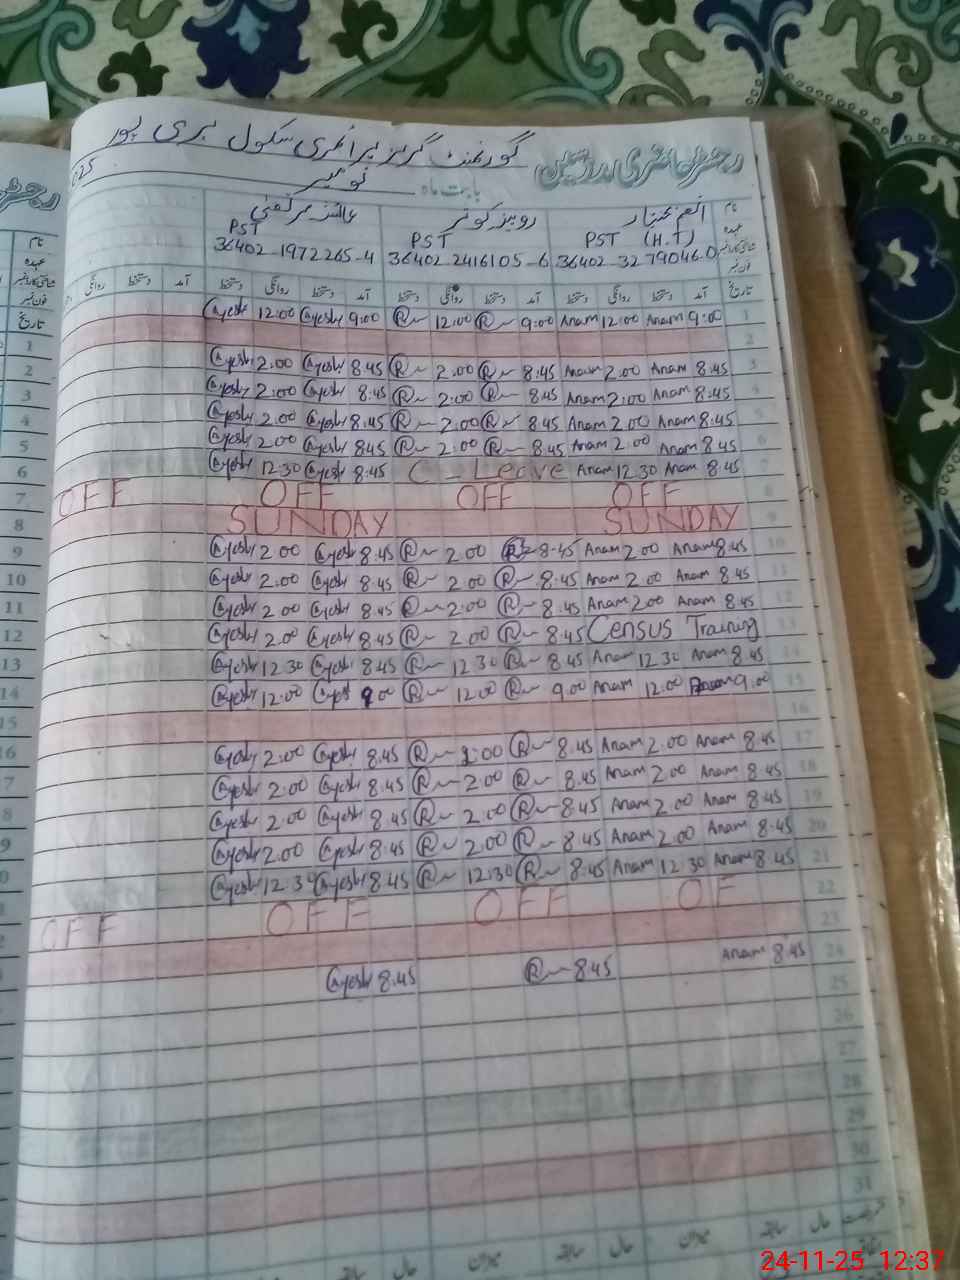 رجسٹر حاضری مدرسین گورنمنٹ گرلز پرائمری سکول ہری پور
بابت ماہ نومبر 2025
نام
عہدہ PST (H.T) PST PST
شناختی کارڈ نمبر 36402-3279046-0 36402-2416105-6 36402-1972265-4
فون نمبر
تاریخ آمد دستخط روانگی دستخط آمد دستخط روانگی دستخط آمد دستخط روانگی دستخط آمد دستخط روانگی
Ayesh 12:00 Ayesh 9:00 R 12:00 R 9:00 Anam 12:00 Anam 9:00 1
2
Ayesh 2.00 Ayesh 8.45 R 2.00 R 8.45 Anam 2.00 Anam 8.45 3
Ayesh 2.00 Ayesh 8.45 R 2.00 R 8.45 Anam 2.00 Anam 8.45 4
Ayesh 2.00 Ayesh 8.45 R 2.00 R 8.45 Anam 2.00 Anam 8.45 5
Ayesh 2.00 Ayesh 8.45 R 2.00 R 8.45 Anam 2.00 Anam 8.45 6
Ayesh 12.30 Ayesh 8.45 C_Leave Anam 12.30 Anam 8.45 7
OFF OFF OFF OFF 8
SUNDAY SUNDAY 9
Ayesh 2.00 Ayesh 8.45 R 2.00 R 8.45 Anam 2.00 Anam 8.45 10
Ayesh 2.00 Ayesh 8.45 R 2.00 R 8.45 Anam 2.00 Anam 8.45 11
Ayesh 2.00 Ayesh 8.45 R 2.00 R 8.45 Anam 2.00 Anam 8.45 12
Ayesh 2.00 Ayesh 8.45 R 2.00 R 8.45 Census Training 13
Ayesh 12.30 Ayesh 8.45 R 12.30 R 8.45 Anam 12.30 Anam 8.45 14
Ayesh 12.00 Ayesh 9.00 R 12.00 R 9.00 Anam 12.00 Anam 9.00 15
16
Ayesh 2.00 Ayesh 8.45 R 2.00 R 8.45 Anam 2.00 Anam 8.45 17
Ayesh 2.00 Ayesh 8.45 R 2.00 R 8.45 Anam 2.00 Anam 8.45 18
Ayesh 2.00 Ayesh 8.45 R 2.00 R 8.45 Anam 2.00 Anam 8.45 19
Ayesh 2.00 Ayesh 8.45 R 2.00 R 8.45 Anam 2.00 Anam 8.45 20
Ayesh 12.30 Ayesh 8.45 R 12.30 R 8.45 Anam 12.30 Anam 8.45 21
OFF OFF OFF OF 22
23
Ayesh 8.45 R 8.45 Anam 8.45 24
25
26
27
28
29
30
31
حال سابقہ میزان حال سابقہ میزان حال سابقہ
24-11-25 12:37